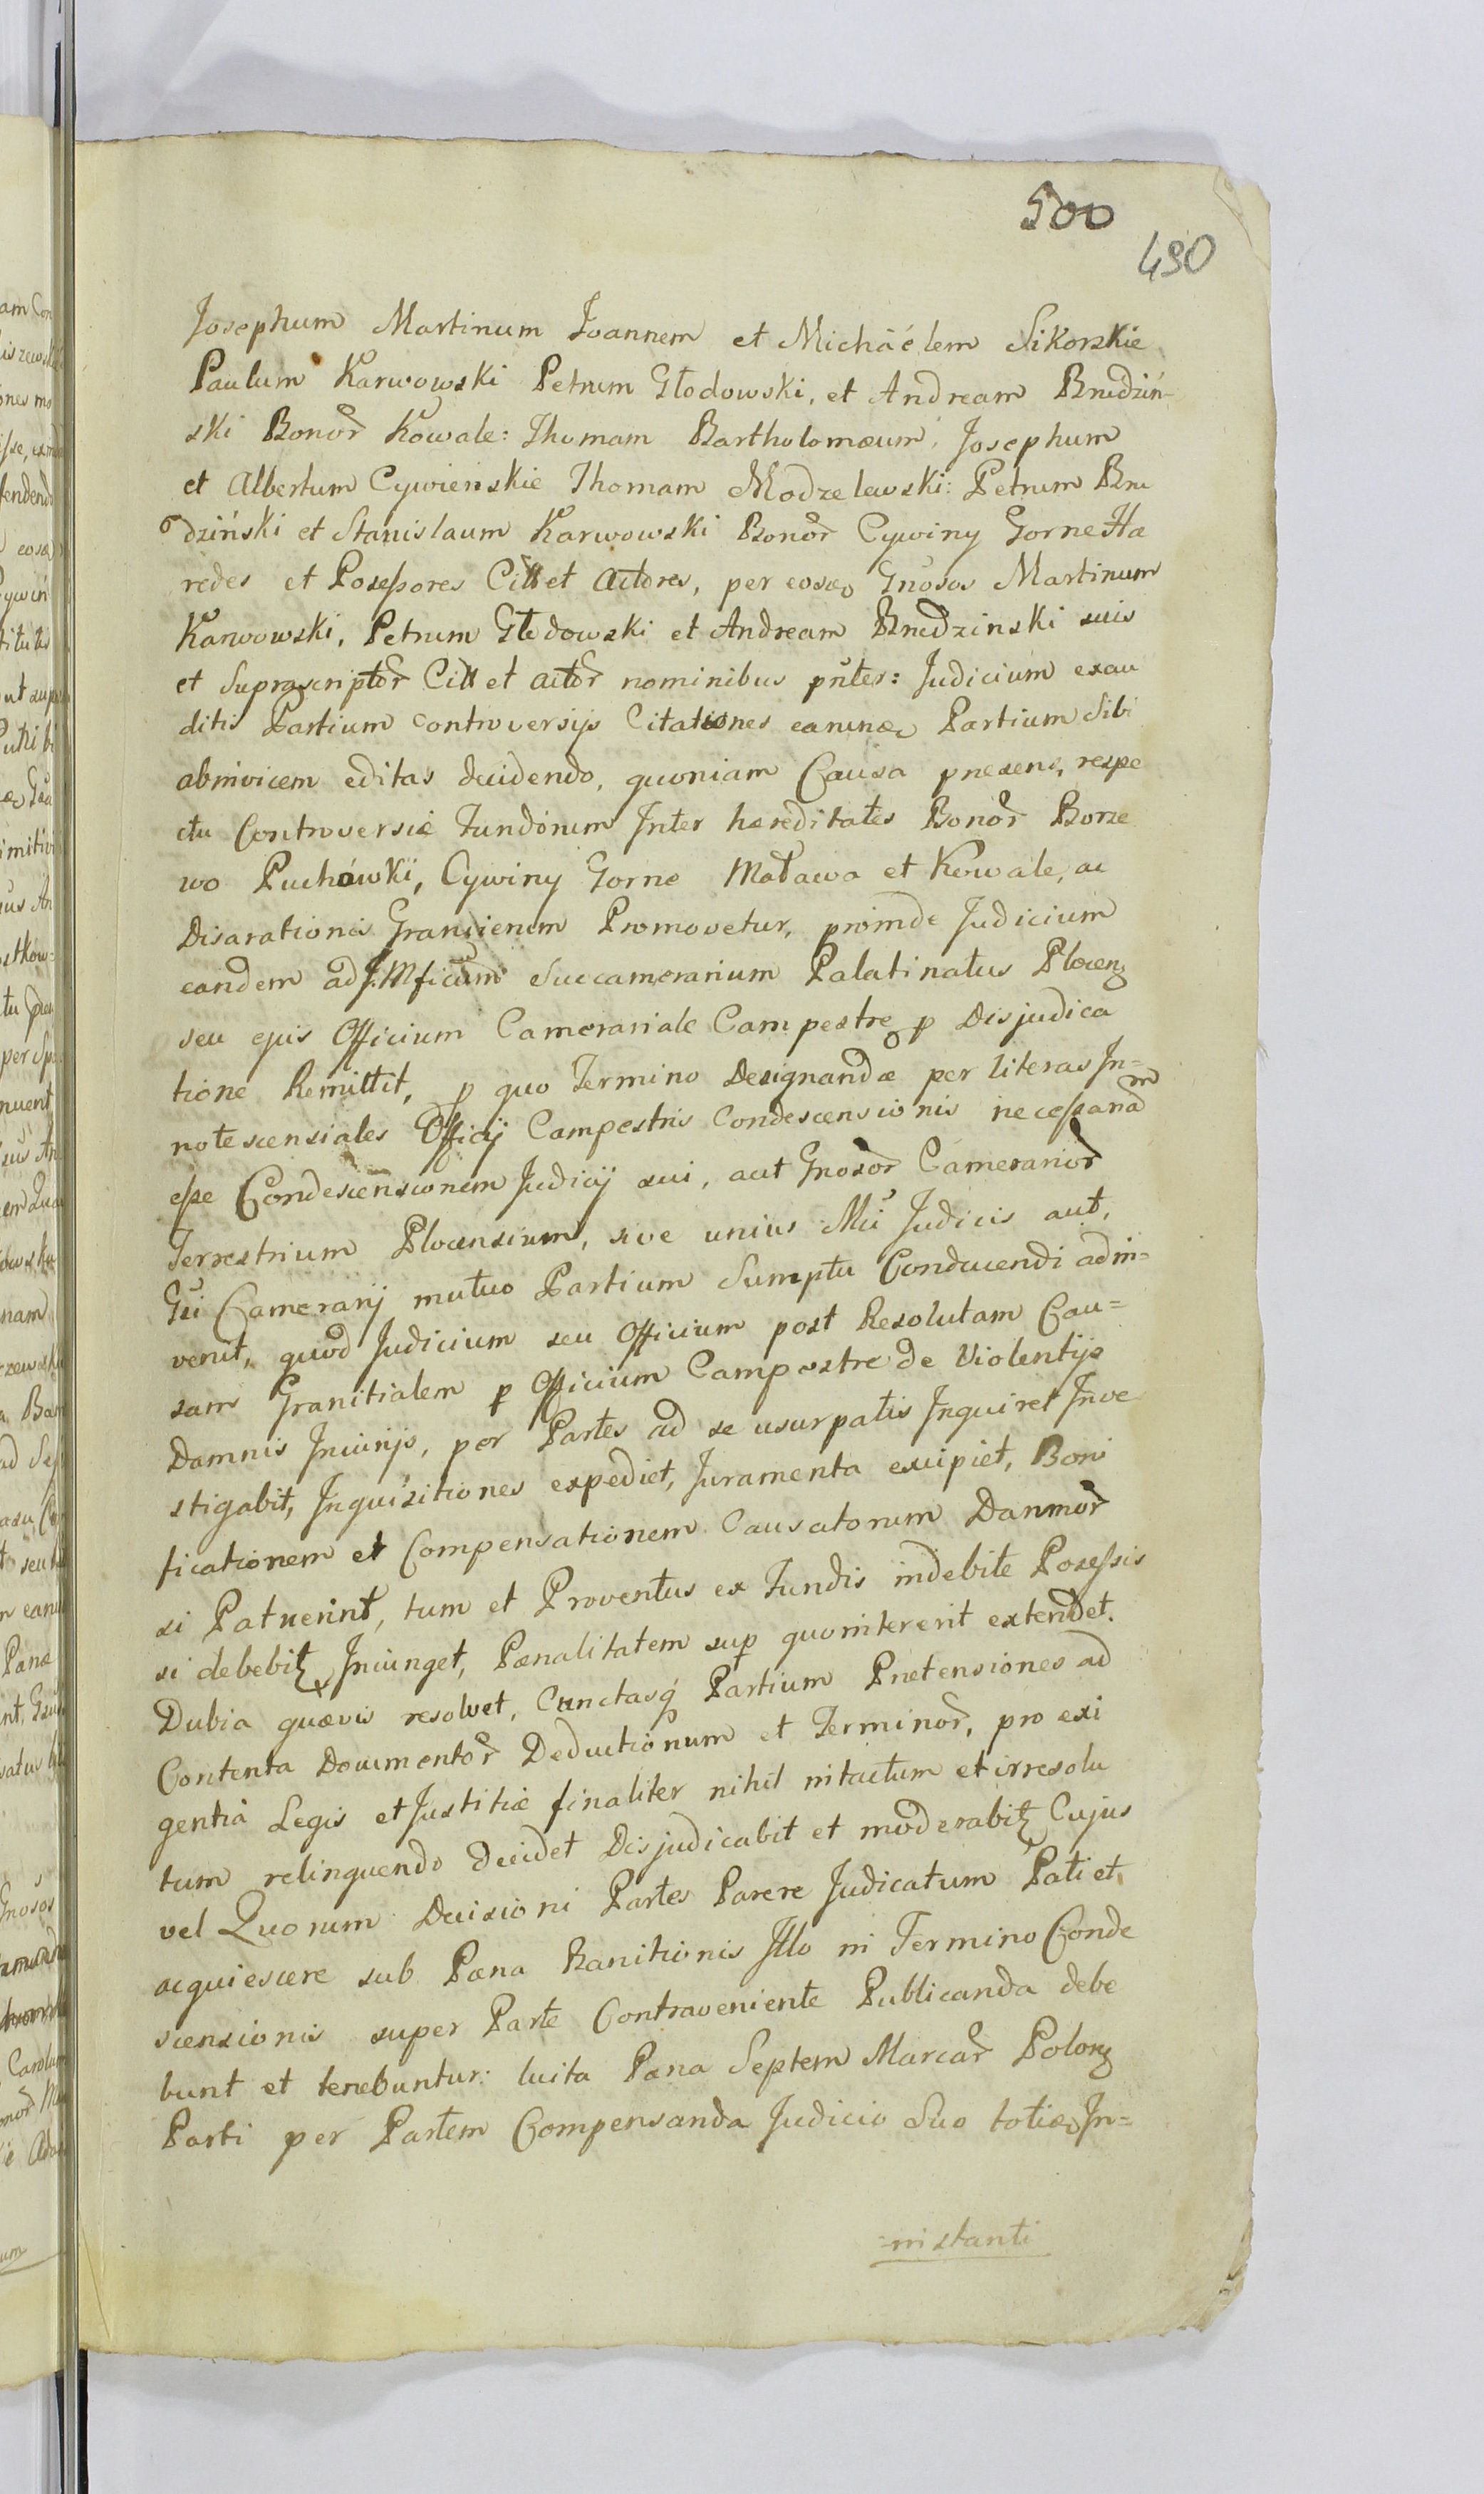 500
490
Josephum Martinum Joannem et Michäélem Sikorskie
Paulum Karwowski Petrum Głodowski, et Andream Brudziń-
ski Bonor̃ Kowale: Thomam Bartholomæum, Josephum
et Albertum Cywienskie Thomam Modzelewski: Petrum Bru
dziński et Stanislaum Karwowski Bonor̃ Cywiny Gorne Hæ
redes et Posessores Citt et Actores, per eosq Gnosos Martinum
Karwowski, Petrum Głodowski et Andream Brudzinski suis
et Suprascriptor̃ Citt et Actor̃ nominibus pñter: Judicium exau
ditis Partium controversijs Citationes earumq Partium Sibi
abinvicem editas decidendo, quoniam Causa præsens, respe
ctu Controversiæ Fundorum Inter hæreditates Bonor̃ Borze
wo Puchówki, Cywiny Gorne Maława et Kowale, ac
Disarationis Granicierum Promovetur, proinde Judicium
eandem ad J. Mficum Succamerarium Palatinatus Plocen
seu ejus Officium Camerariale Campestre p Disjudica
tione Remittit, p quo Termino Designandæ per literas In-
notescensiales Officij Campestris Condescensionis necessariam
esse Condescensionem Judicij sui, aut Gnosor̃ Camerarior̃
Terrestrium Plocensium, sive unius Mci Judicis aut,
Gsi Camerarij mutuo Partium Sumptu Conducendi adin-
venit, quod Judicium seu Officium post Resolutam Cau=
sam Granitialem p Officium Campestre de Violentijs
Damnis Iniurijs, per Partes ad se usurpatis Inquiret Inve
stigabit, Inquisitiones expediet, Juramenta excipiet, Boni
ficationem et Compensationem Causatorum Damnor̃
si Patuerint, tum et Proventus ex Fundis indebite Posessis
si debebit Iniunget, Pænalitatem sup quo intererit extendet.
Dubia quævis resolvet, Cunctasq Partium Prætensiones ad
Contenta Documentor̃ Deductionum et Terminor̃, pro exi
gentia Legis et Justitiæ finaliter nihil intactum et irresolu
tum relinquendo decidet Disjudicabit et moderabit Cujus
vel Quorum Decisioni Partes Parere Judicatum Pati et
acquiescere sub Pæna Banitionis Illo in Termino Conde
scensionis super Parte Contraveniente Publicanda debe
bunt et tenebuntur: luita Pæna Septem Marcar̃ Polon
Parti per Partem Compensanda Judicio Suo totiesq In=
=instanti